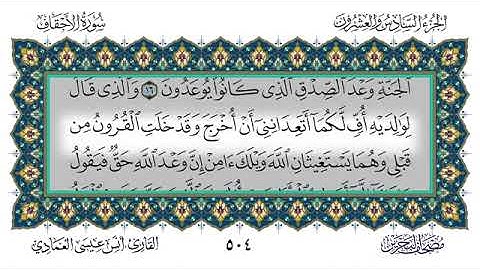 الجزء السادس والعشرون
سورة الأحقاف
ٱلْجَنَّةِ وَعْدَ ٱلصِّدْقِ ٱلَّذِى كَانُوا۟ يُوعَدُونَ ١٦ وَٱلَّذِى قَالَ
لِوَٰلِدَيْهِ أُفٍّ لَّكُمَآ أَتَعِدَانِنِىٓ أَنْ أُخْرَجَ وَقَدْ خَلَتِ ٱلْقُرُونُ مِن
قَبْلِى وَهُمَا يَسْتَغِيثَانِ ٱللَّهَ وَيْلَكَ ءَامِنْ إِنَّ وَعْدَ ٱللَّهِ حَقٌّ فَيَقُولُ
٥٠٤
القارئ أنس عيسى العمادي